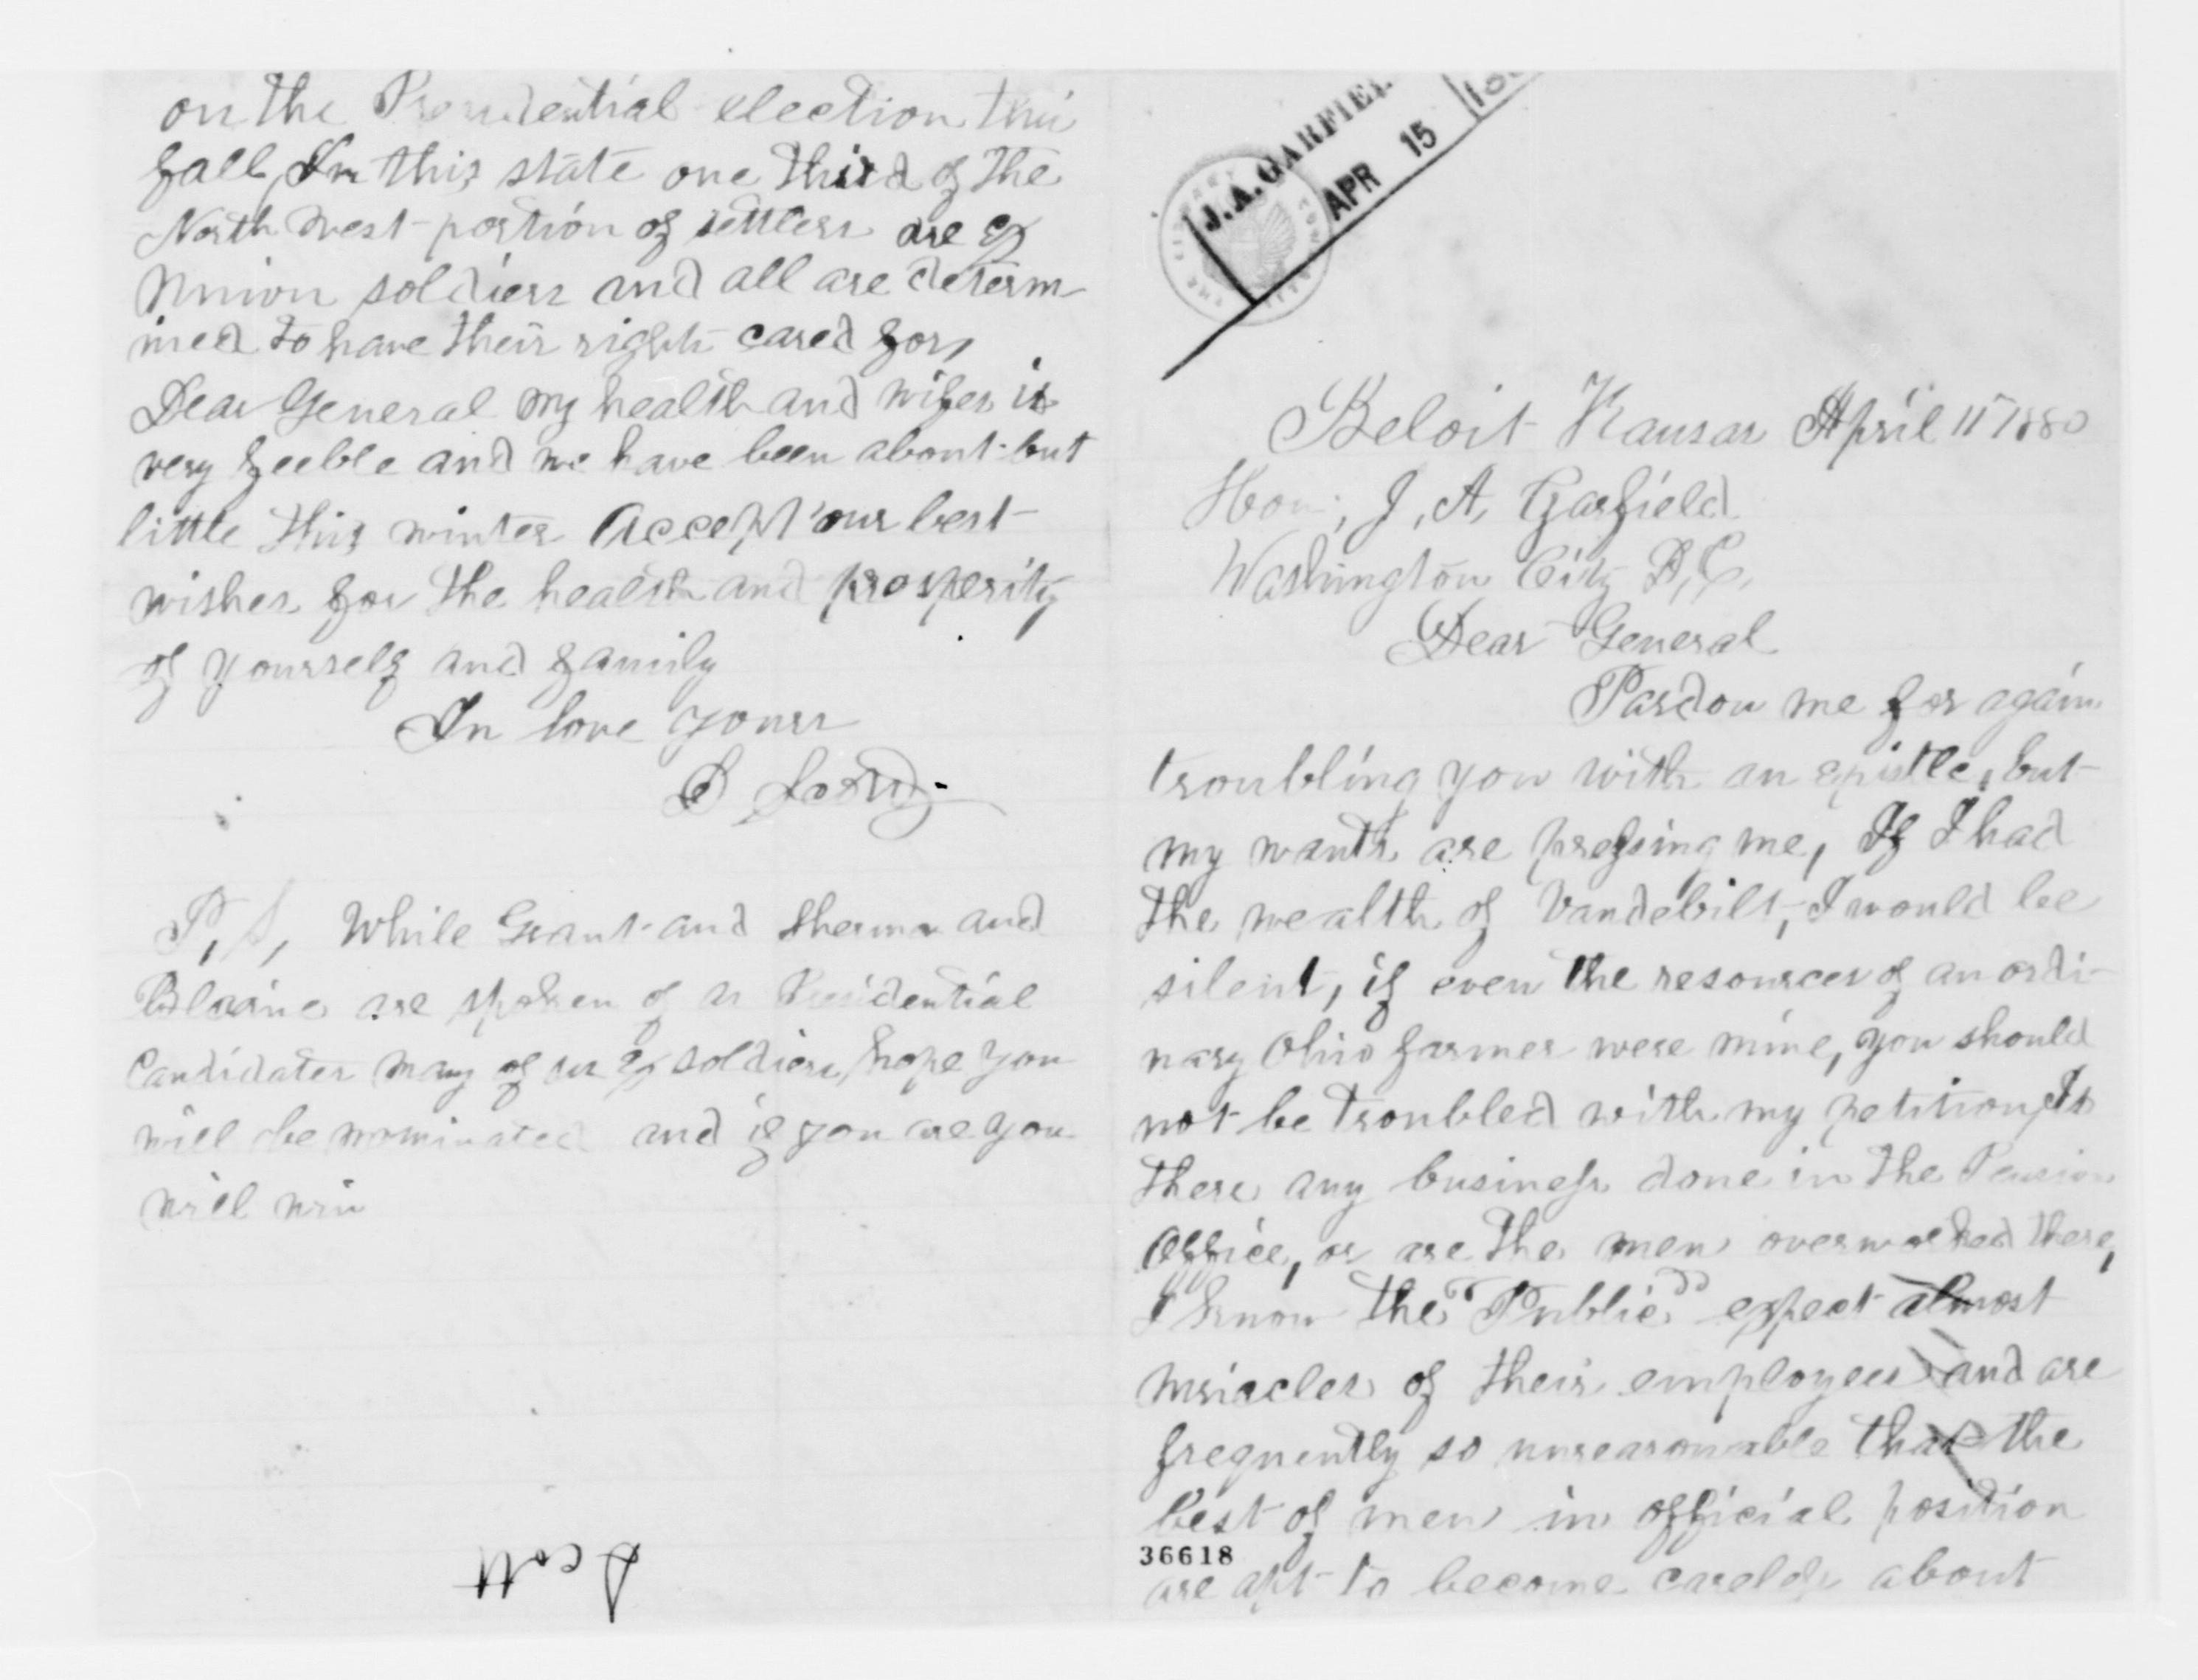 J. A. GARFIEL
APR 15
Beloit Kansas April 11" 1880
Hon; J, A, Garfield
Washington City D, C,
Dear General
Pardon me for again
troubling you with an epistle, but
my wants are pressing me, If I had
the wealth of Vandebilt, I would be
silent, if even the resources of an ordi-
nary Ohio farmer were mine, you should
not be troubled with my petition, Is
there any business done in the Pension
Office, or are the men overworked there,
I know the "Public" expect almost
miracles of their employees and are
frequently so unreasonable that the
best of men in official position
36618
are apt to become careless about
on the Presidential election this
fall, In this state one third of the
North West portion of settlers are Ex
Union soldiers and all are determ-
ined to have their rights cared for,
Dear General my health and wifes is
very feeble and we have been about but
little this winter Accept our best
wishes for the health and prosperity
of yourself and family
In love yours
P, S, While Grant and Sherman and
Blaine are spoken of as Presidential
Candidates many of us Ex soldiers hope you
will be nominated and if you are you
will win
Scott